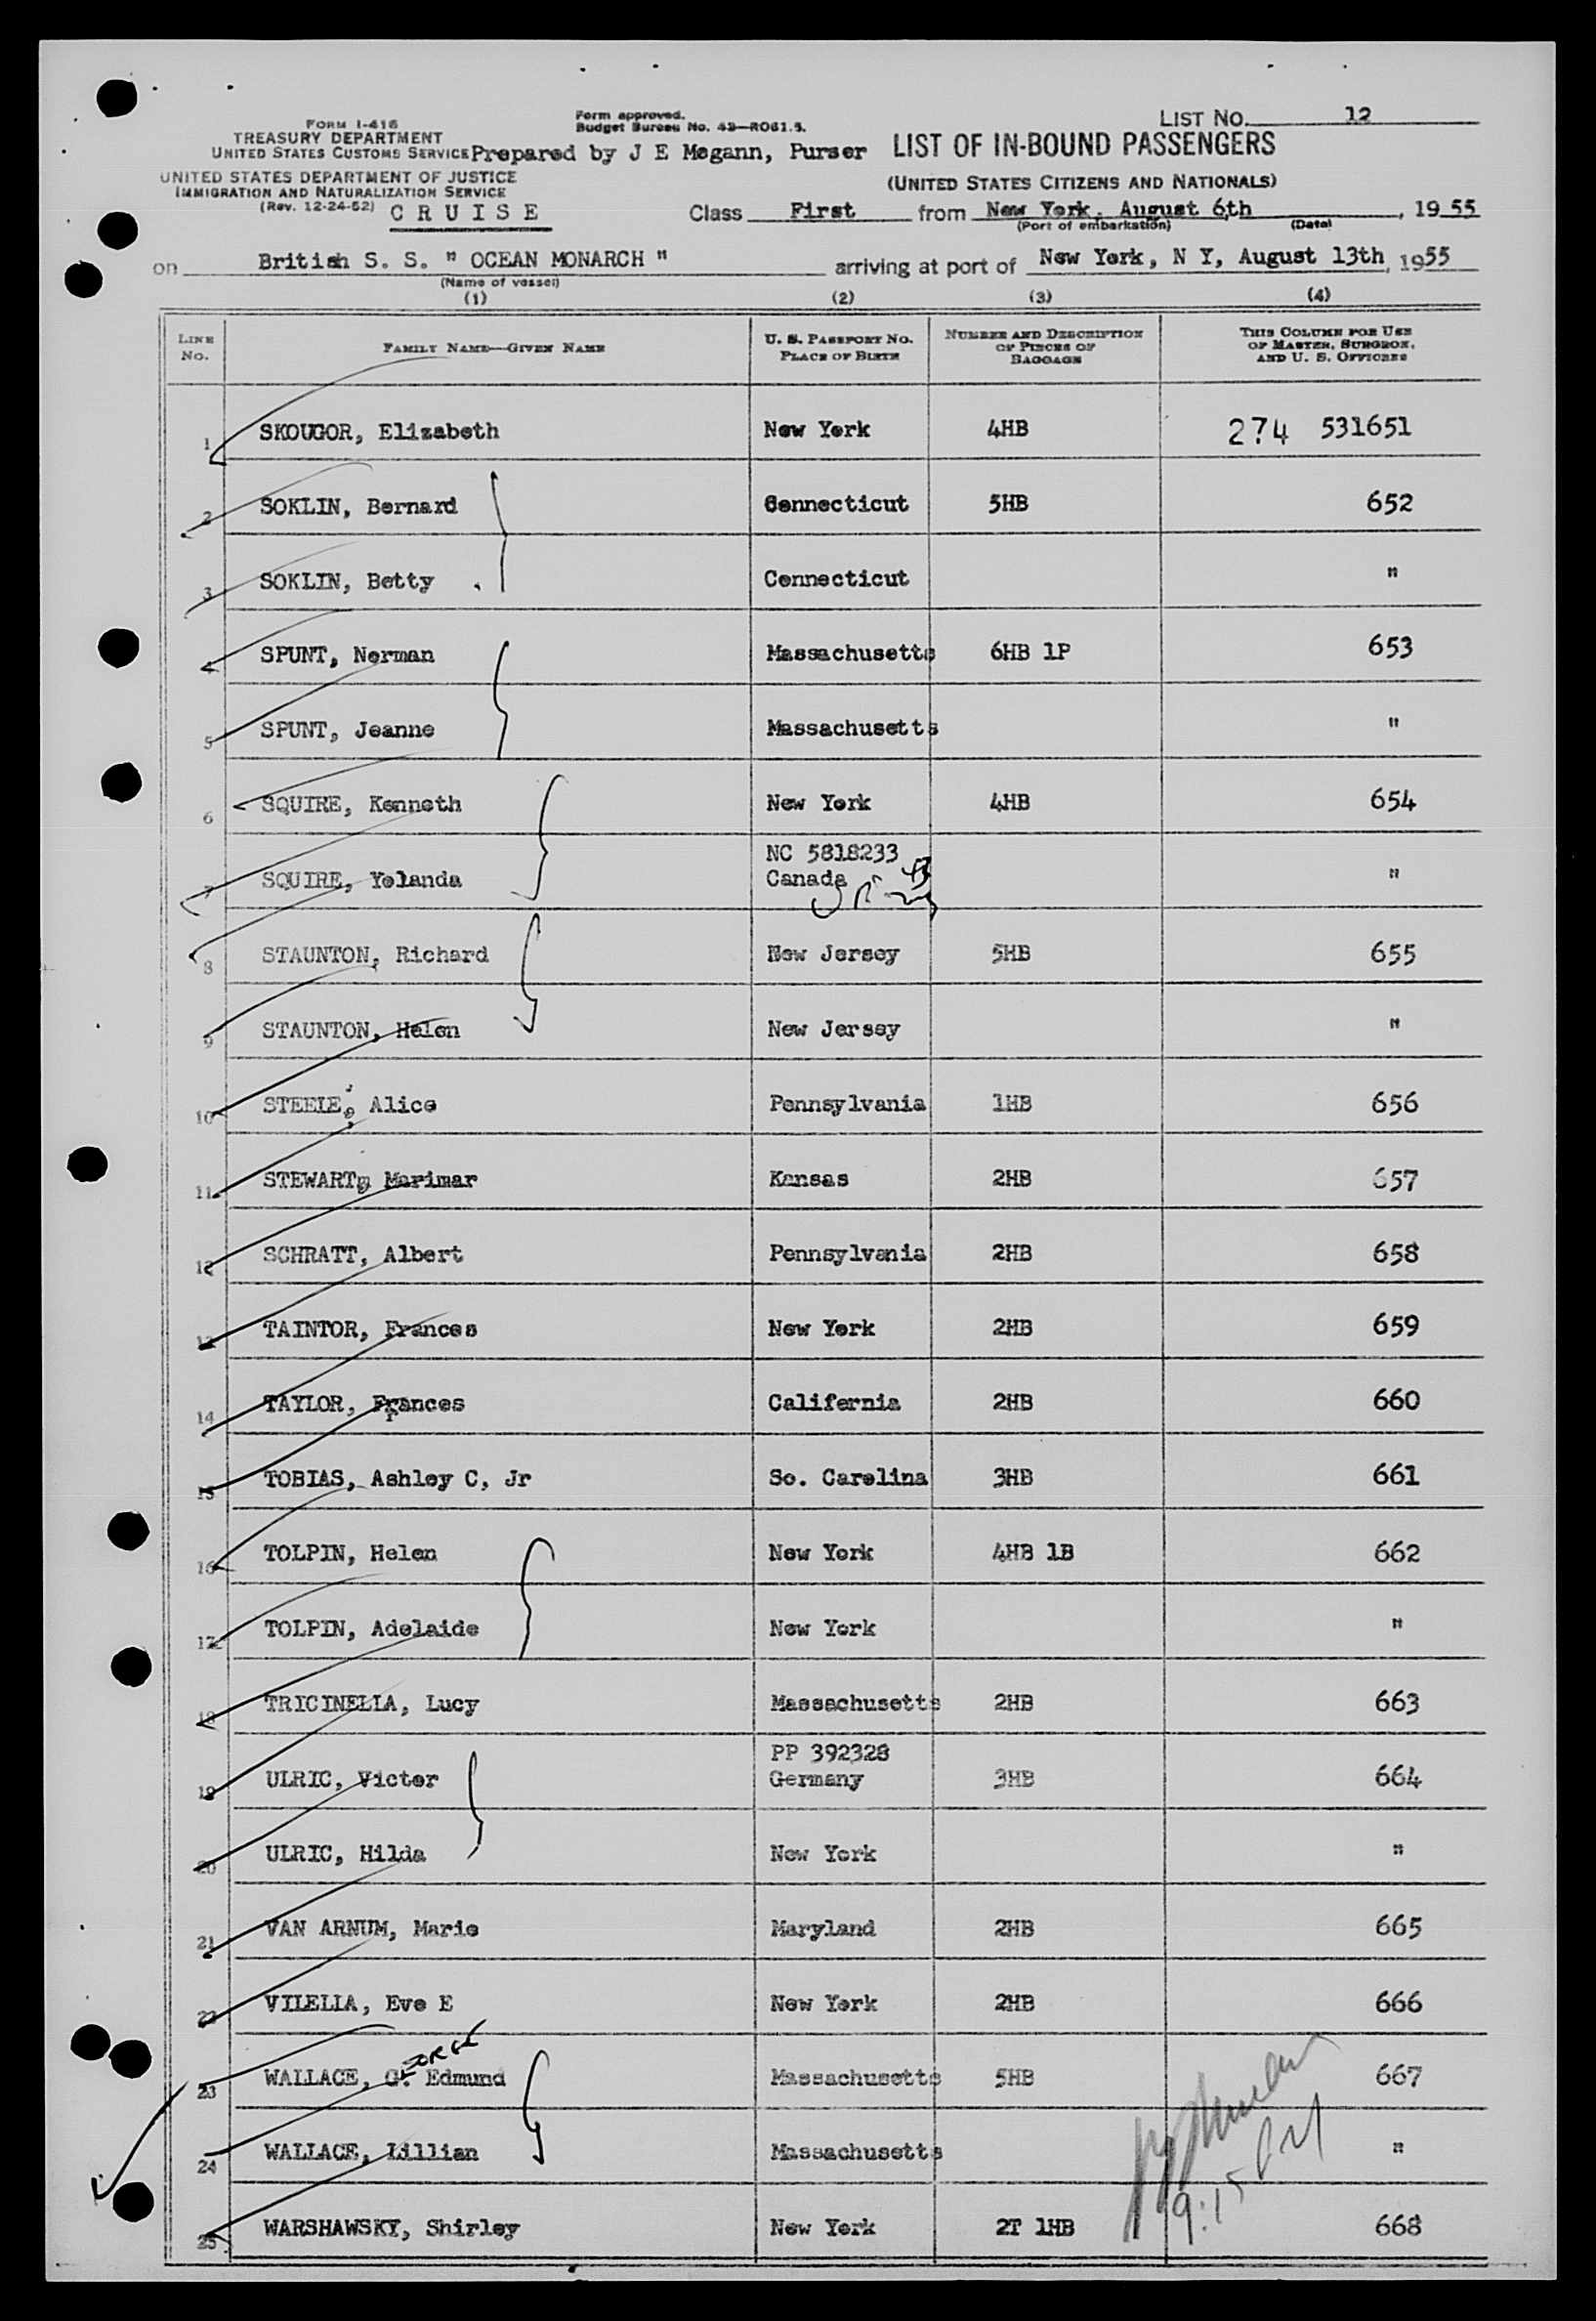 FORM I-416
TREASURY DEPARTMENT
UNITED STATES CUSTOMS SERVICE
UNITED STATES DEPARTMENT OF JUSTICE
IMMIGRATION AND NATURALIZATION SERVICE
(Rev. 12-24-52) CRUISE
Form approved.
Budget Bureau No. 43—R061.5.
Prepared by J E Megann, Purser
LIST No. 12
LIST OF IN-BOUND PASSENGERS
(UNITED STATES CITIZENS AND NATIONALS)
Class First from New York, August 6th, 1955
(Port of embarkation) (Date)
on British S. S. " OCEAN MONARCH " arriving at port of New York, N Y, August 13th, 1955
(Name of vessel)
(1) (2) (3) (4)
LINE No. FAMILY NAME—GIVEN NAME U. S. PASSPORT NO. PLACE OF BIRTH NUMBER AND DESCRIPTION OF PIECES OF BAGGAGE THIS COLUMN FOR USE OF MASTER, SURGEON, AND U. S. OFFICERS
1 SKOUGOR, Elizabeth New York 4HB 274 531651
2 SOKLIN, Bernard Connecticut 5HB 652
3 SOKLIN, Betty Connecticut "
4 SPUNT, Norman Massachusetts 6HB 1P 653
5 SPUNT, Jeanne Massachusetts "
6 SQUIRE, Kenneth New York 4HB 654
7 SQUIRE, Yolanda NC 5818233 Canada "
8 STAUNTON, Richard New Jersey 5HB 655
9 STAUNTON, Helen New Jersey "
10 STEELE, Alice Pennsylvania 1HB 656
11 STEWART, Marimar Kansas 2HB 657
12 SCHRATT, Albert Pennsylvania 2HB 658
13 TAINTOR, Frances New York 2HB 659
14 TAYLOR, Frances California 2HB 660
15 TOBIAS, Ashley C, Jr So. Carolina 3HB 661
16 TOLPIN, Helen New York 4HB 1B 662
17 TOLPIN, Adelaide New York "
18 TRICINELLA, Lucy Massachusetts 2HB 663
19 ULRIC, Victor PP 392328 Germany 3HB 664
20 ULRIC, Hilda New York "
21 VAN ARNUM, Marie Maryland 2HB 665
22 VILELLA, Eve E New York 2HB 666
23 WALLACE, GEORGE Edmund Massachusetts 5HB 667
24 WALLACE, Lillian Massachusetts "
25 WARSHAWSKY, Shirley New York 2T 1HB 668
9:15 PM